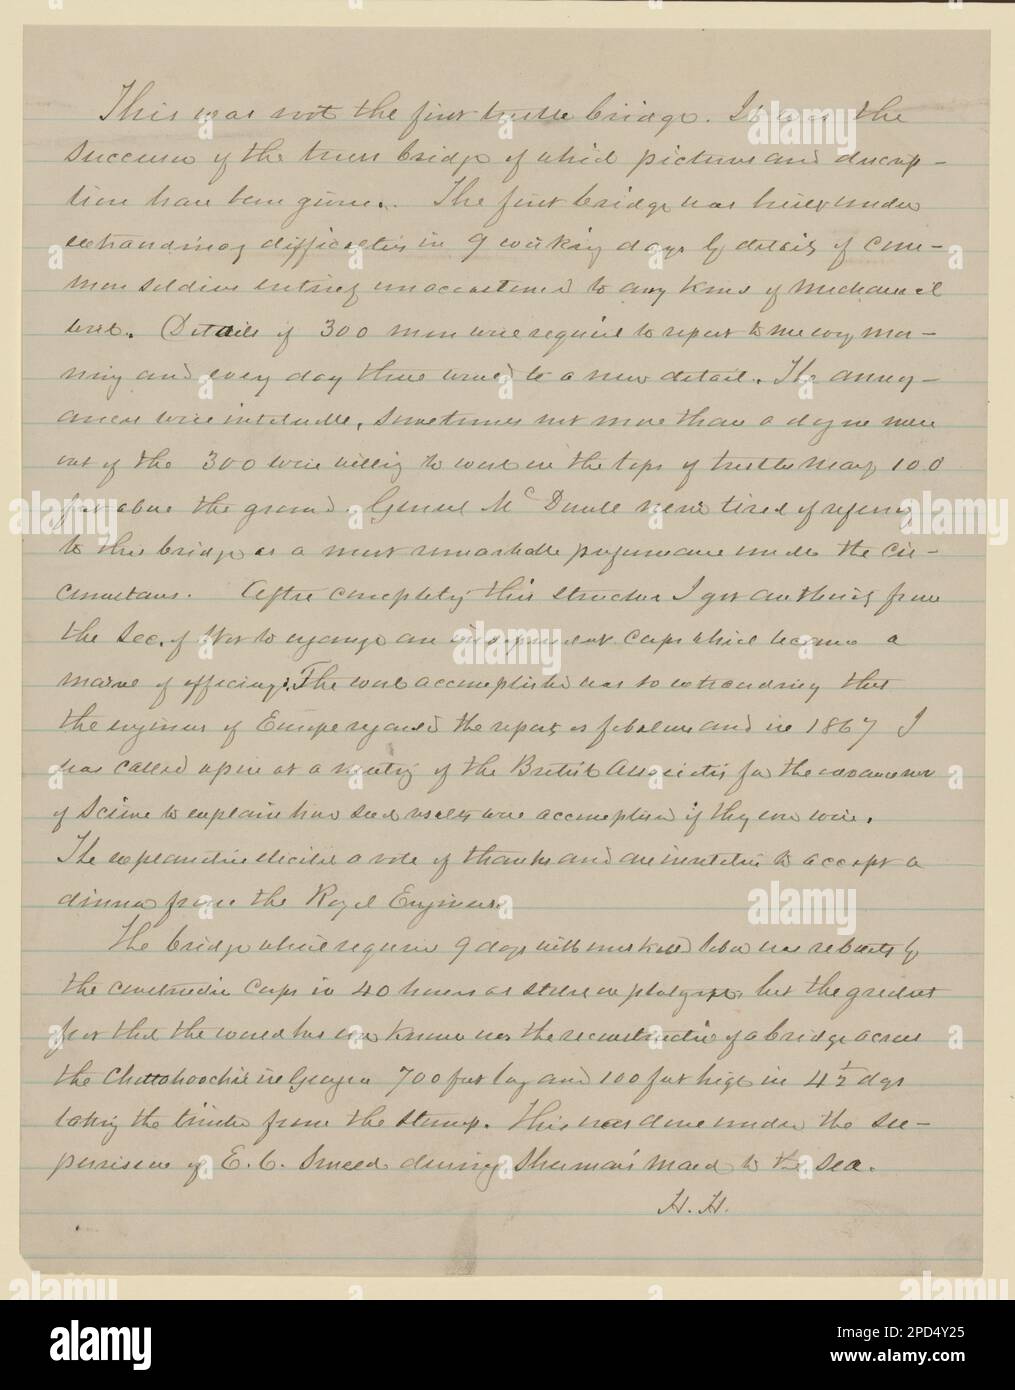 This was not the first trestle bridge. It was the
successor of the truss bridge of which pictures and descrip-
tion have been given. The first bridge was built under
extraordinary difficulties in 9 working days by details of com-
mon soldiers entirely unaccustomed to any kind of mechanical
work. Details of 300 men were required to report to me every mor-
ning and every day there would be a new detail. The annoy-
ances were intolerable, sometimes not more than a dozen men
out of the 300 were willing to work on the tops of trestles nearly 100
feet above the ground. General McDowell never tired of referring
to this bridge as a most remarkable performance under the cir-
cumstances. After completing this structure I got authority from
the Sec. of War to organize an independent corps which became a
marvel of efficiency. The work accomplished was so extraordinary that
the engineers of Europe regarded the reports as fabulous and in 1867 I
was called upon at a meeting of the British Association for the advancement
of Science to explain how such results were accomplished if they ever were.
The explanation elicited a vote of thanks and an invitation to accept a
dinner from the Royal Engineers.
The bridge which required 9 days with unskilled labor was rebuilt by
the construction Corps in 40 hours as stated in photograph, but the greatest
feat that the world has ever known was the reconstruction of a bridge across
the Chattahoochie in Georgia 700 feet long and 100 feet high in 4½ days
taking the timber from the stump. This was done under the su-
pervision of E. C. Smeed during Sherman's March to the Sea.
H. H.
alamy
a
Image ID: 2PD4Y25
www.alamy.com